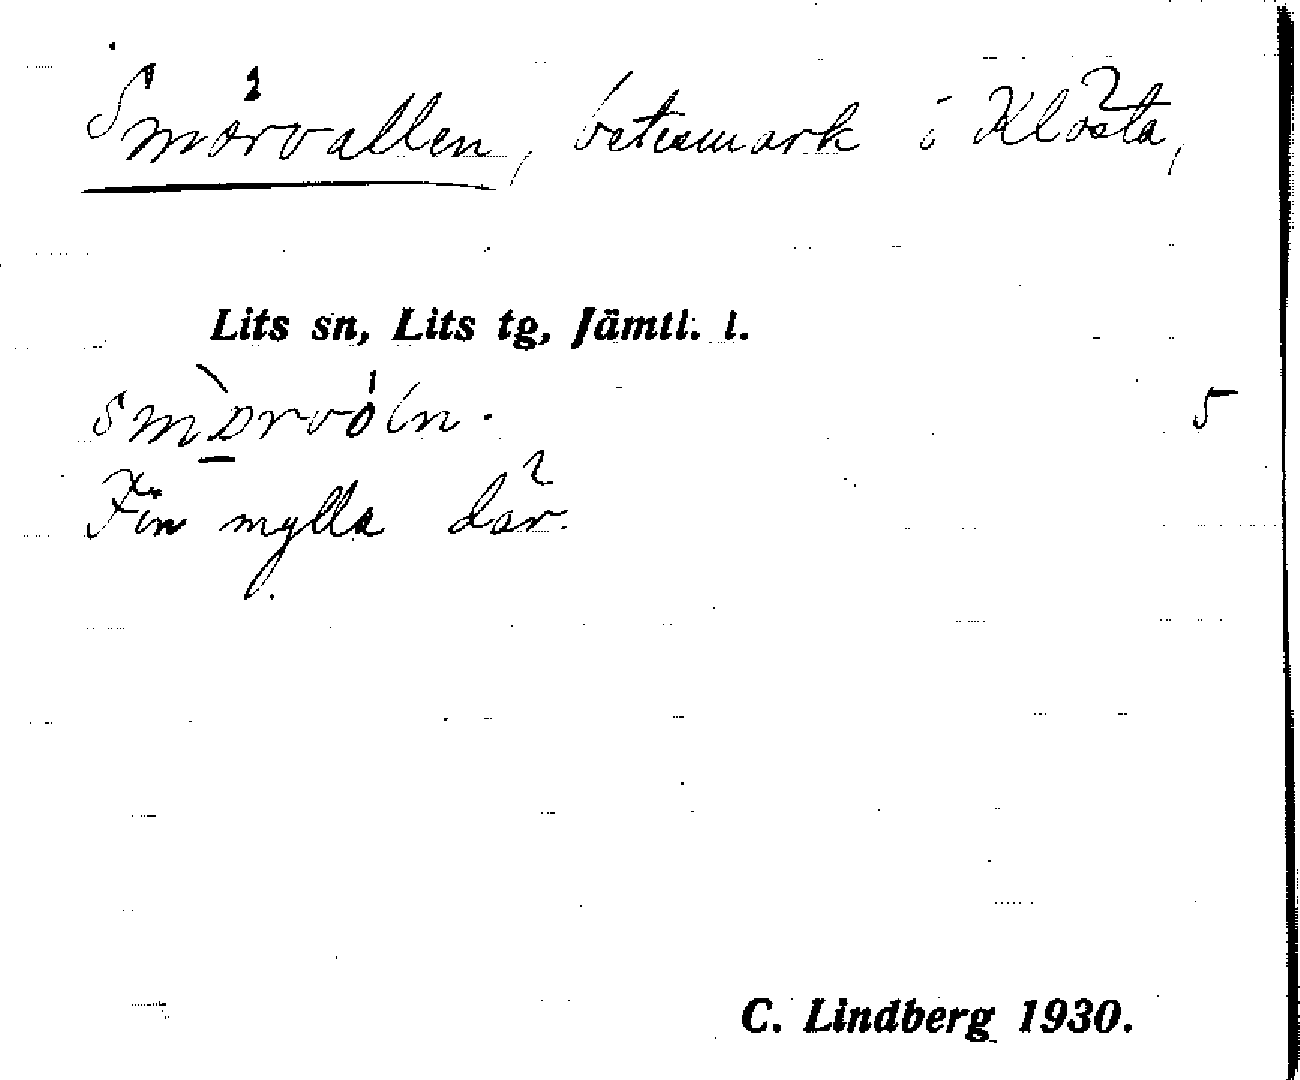 Smörvallen, betesmark i Klösta,
Lits sn, Lits tg, Jämtl. l.
5
Fin mylla där.
C. Lindberg 1930.